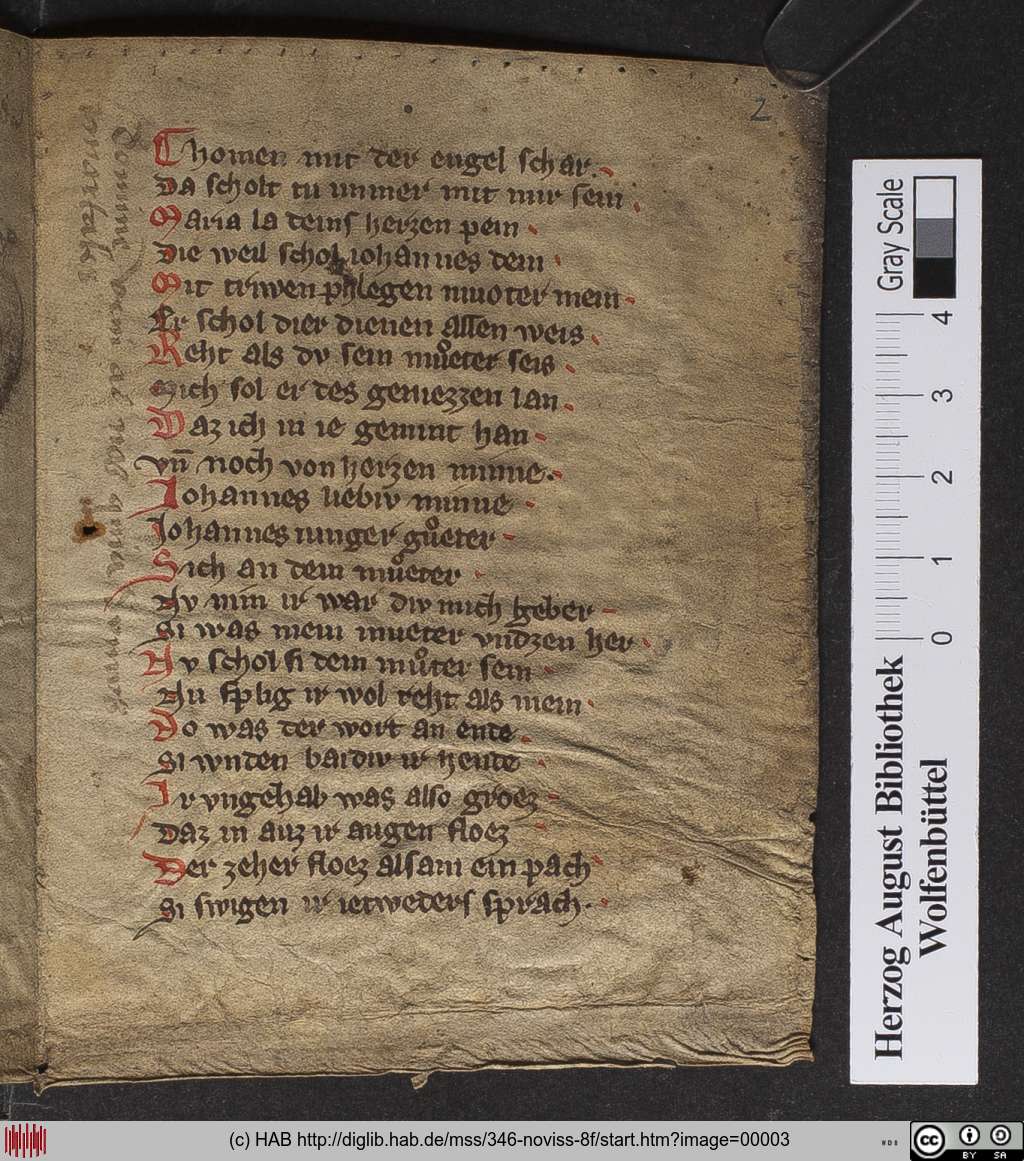 2
Chomen mit der engel schar.
Da scholt tu immer mit mir sein
Maria la deinſ herzen pein
Die weil schol iohannes dein
Mit triwen phlegen muoter mein
Er schol dier dienen allen weis
Reht als dv sein muͦter seis
Mich sol er des geniezzen lan
Daz ich in ie geminnt han
vn̄ noch von herzen minne.
Iohannes liebiv minne
Iohannes iunger guͦter
Sich an dein muͦter
Nv nim ir war div mich geber
Si was mein mueter vndzen her
Nv schol si dein muͦter sein
Nu splig ir wol reht als mein
Do was der wort an ente
Si wnden baidiv ir hente
Ir vngehab was also groez
Daz in auz ir augen floez
Der zeher floez alsam ein pach
Si swigen ir ietweders sprach.
Gray Scale
4 3 2 1 0
Herzog August Bibliothek
Wolfenbüttel
(c) HAB http://diglib.hab.de/mss/346-noviss-8f/start.htm?image=00003
WDB
cc BY SA